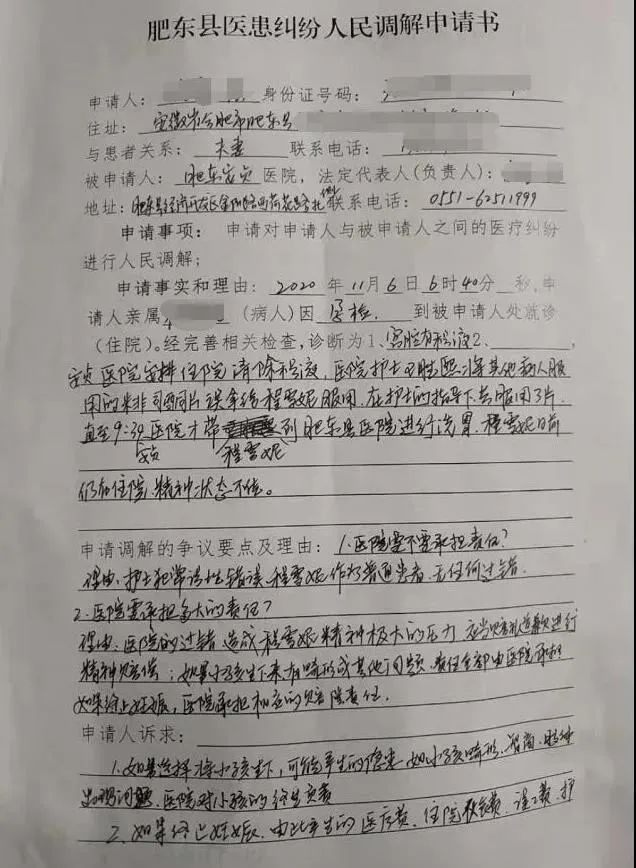 肥东县医患纠纷人民调解申请书
申请人： 身份证号码：
住址：安徽省合肥市肥东县
与患者关系：夫妻 联系电话：
被申请人：肥东安贞医院，法定代表人(负责人)：
地址：肥东县经济开发区金阳路与西荷花路 联系电话：0551-62511999
申请事项：申请对申请人与被申请人之间的医疗纠纷
进行人民调解；
申请事实和理由：2020年11月6日6时40分 秒，申
请人亲属 （病人）因 检，到被申请人处就诊
（住院）。经完善相关检查，诊断为1、宫腔有积液2、
安贞医院安排住院清除积液，医院护士 将其他病人服
用的米非司酮片误拿给程雪妮服用，在护士的指导下共服用3片，
直至9:30医院才带 到肥东县医院进行洗胃，程雪妮目前
安贞 程雪妮
仍在住院，精神状态不佳。
申请调解的争议要点及理由：1.医院需不需承担责任？
理由：护士犯常识性错误，程雪妮作为普通患者，无任何过错。
2.医院需承担多大的责任？
理由：医院的过错，造成程雪妮精神极大的压力，应当 进行
精神赔偿；如果小孩生下来有畸形或其他问题，责任全部由医院承担
如果终止妊娠，医院承担相应的赔偿责任。
申请人诉求：
1.如果选择将小孩生下，可能产生的隐患，如小孩畸形、智商、
出现问题，医院对小孩的终生负责
2、如果终止妊娠，由此产生的医疗费、住院 费、误工费、护